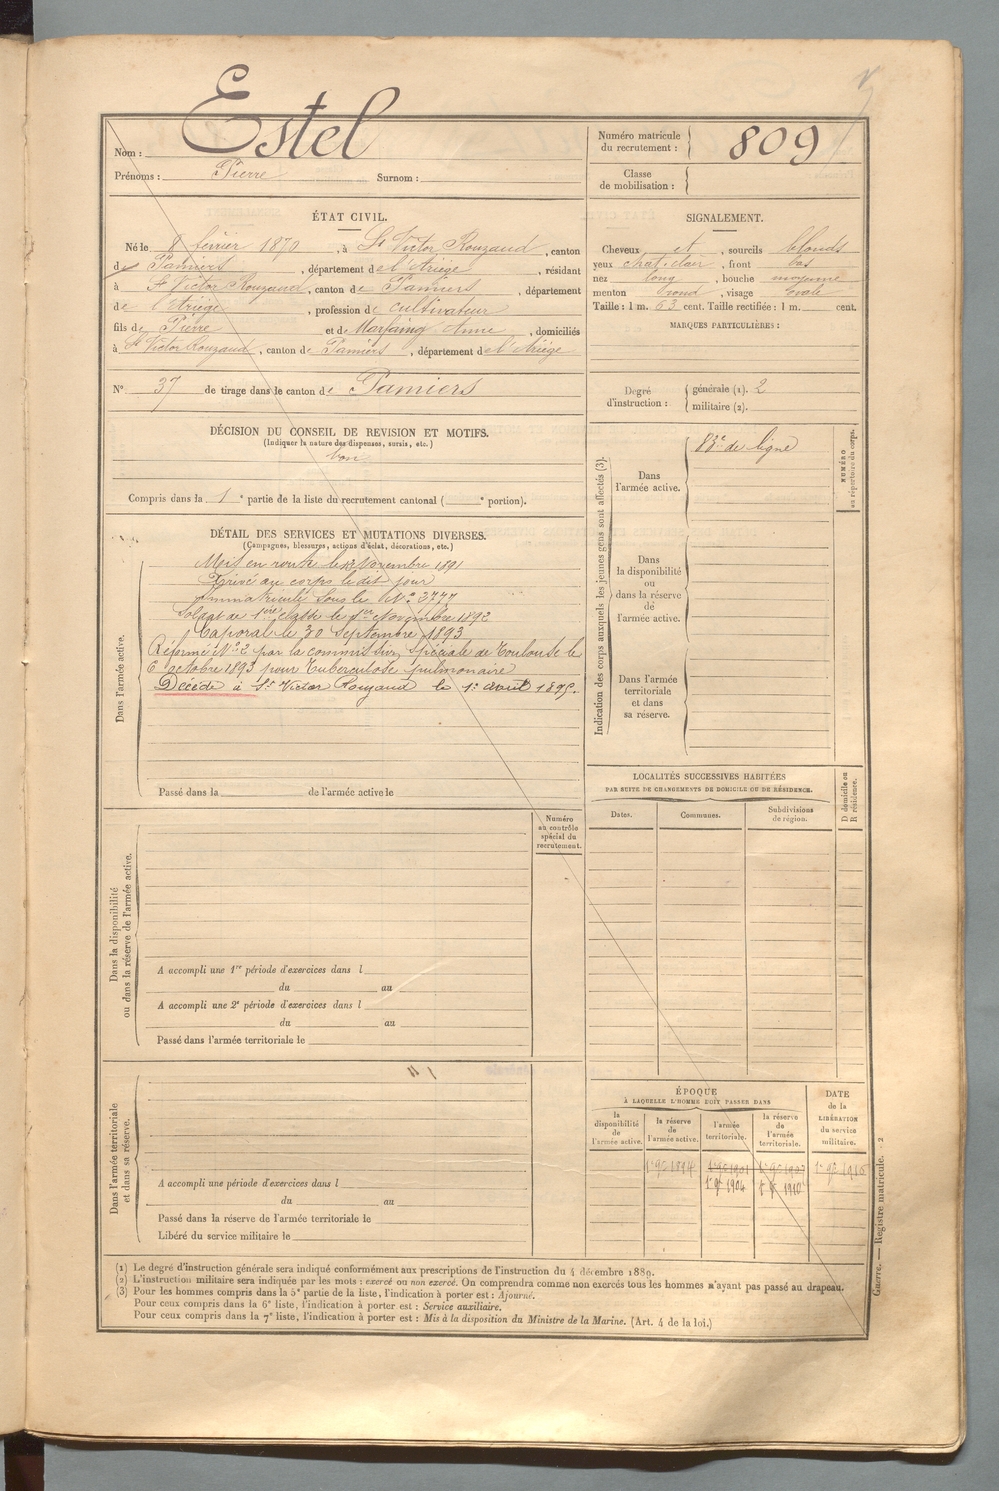 Estel
Nom :
Prénoms : Pierre Surnom :
Numéro matricule
du recrutement : 809
Classe
de mobilisation :
ÉTAT CIVIL.
Né le 8 février 1870, à St Victor Rouzaud, canton
de Pamiers, département de l'Ariège, résidant
à St Victor Rouzaud, canton de Pamiers, département
de l'Ariège, profession de cultivateur
fils de Pierre et de Marfaing Anne, domiciliés
à St Victor Rouzaud, canton de Pamiers, département de l'Ariège
N° 37 de tirage dans le canton de Pamiers
SIGNALEMENT.
Cheveux et, sourcils blonds
yeux chat. clair, front bas
nez long, bouche moyenne
menton rond, visage ovale
Taille : 1 m. 63 cent. Taille rectifiée : 1 m. cent.
MARQUES PARTICULIÈRES :
Degré
d'instruction :
générale (1). 2
militaire (2).
DÉCISION DU CONSEIL DE REVISION ET MOTIFS.
(Indiquer la nature des dispenses, sursis, etc.)
bon
Compris dans la 1e partie de la liste du recrutement cantonal ( e portion).
DÉTAIL DES SERVICES ET MUTATIONS DIVERSES.
(Campagnes, blessures, actions d'éclat, décorations, etc.)
Dans l'armée active.
Mis en route le Novembre 1891
Arrivé au corps le dit jour
Immatriculé sous le N° 3777
Soldat de 1ère classe le 1er Novembre 1892
Caporal le 30 Septembre 1893
Réformé N° 2 par la commission spéciale de Toulouse le
6 octobre 1893 pour Tuberculose pulmonaire
Décédé à St Victor Rouzaud le 1er 1895.
Passé dans la de l'armée active le
Indication des corps auxquels les jeunes gens sont affectés (3).
Dans
l'armée active.
83e de ligne
NUMÉRO
au répertoire du corps.
Dans
la disponibilité
ou
dans la réserve
de
l'armée active.
Dans l'armée
territoriale
et dans
sa réserve.
LOCALITÉS SUCCESSIVES HABITÉES
PAR SUITE DE CHANGEMENTS DE DOMICILE OU DE RÉSIDENCE.
Dates.
Communes.
Subdivisions
de région.
D domicile ou
R résidence.
Numéro
au contrôle
spécial du
recrutement.
Dans la disponibilité
ou dans la réserve de l'armée active.
A accompli une 1re période d'exercices dans l
du au
A accompli une 2e période d'exercices dans l
du au
Passé dans l'armée territoriale le
Dans l'armée territoriale
et dans sa réserve.
A accompli une période d'exercices dans l
du au
Passé dans la réserve de l'armée territoriale le
Libéré du service militaire le
ÉPOQUE
À LAQUELLE L'HOMME DOIT PASSER DANS
la
disponibilité
de
l'armée active.
la réserve
de
l'armée active.
l'armée
territoriale.
la réserve
de
l'armée
territoriale.
DATE
de la
LIBÉRATION
du service
militaire.
1er 9bre 1894 1er 9bre 1901 1er 9bre 1907 1er 9bre 1916
1er 9bre 1904 1er 9bre 1910
Guerre. — Registre matricule. 2
(1) Le degré d'instruction générale sera indiqué conformément aux prescriptions de l'instruction du 4 décembre 1889.
(2) L'instruction militaire sera indiquée par les mots : exercé ou non exercé. On comprendra comme non exercés tous les hommes n'ayant pas passé au drapeau.
(3) Pour les hommes compris dans la 5e partie de la liste, l'indication à porter est : Ajourné.
Pour ceux compris dans la 6e liste, l'indication à porter est : Service auxiliaire.
Pour ceux compris dans la 7e liste, l'indication à porter est : Mis à la disposition du Ministre de la Marine. (Art. 4 de la loi.)